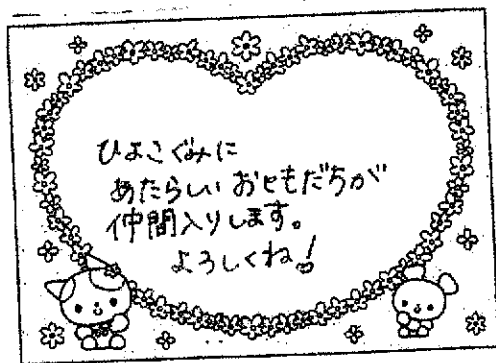 ひよこぐみに
あたらしいおともだちが
仲間入りします。
よろしくね!